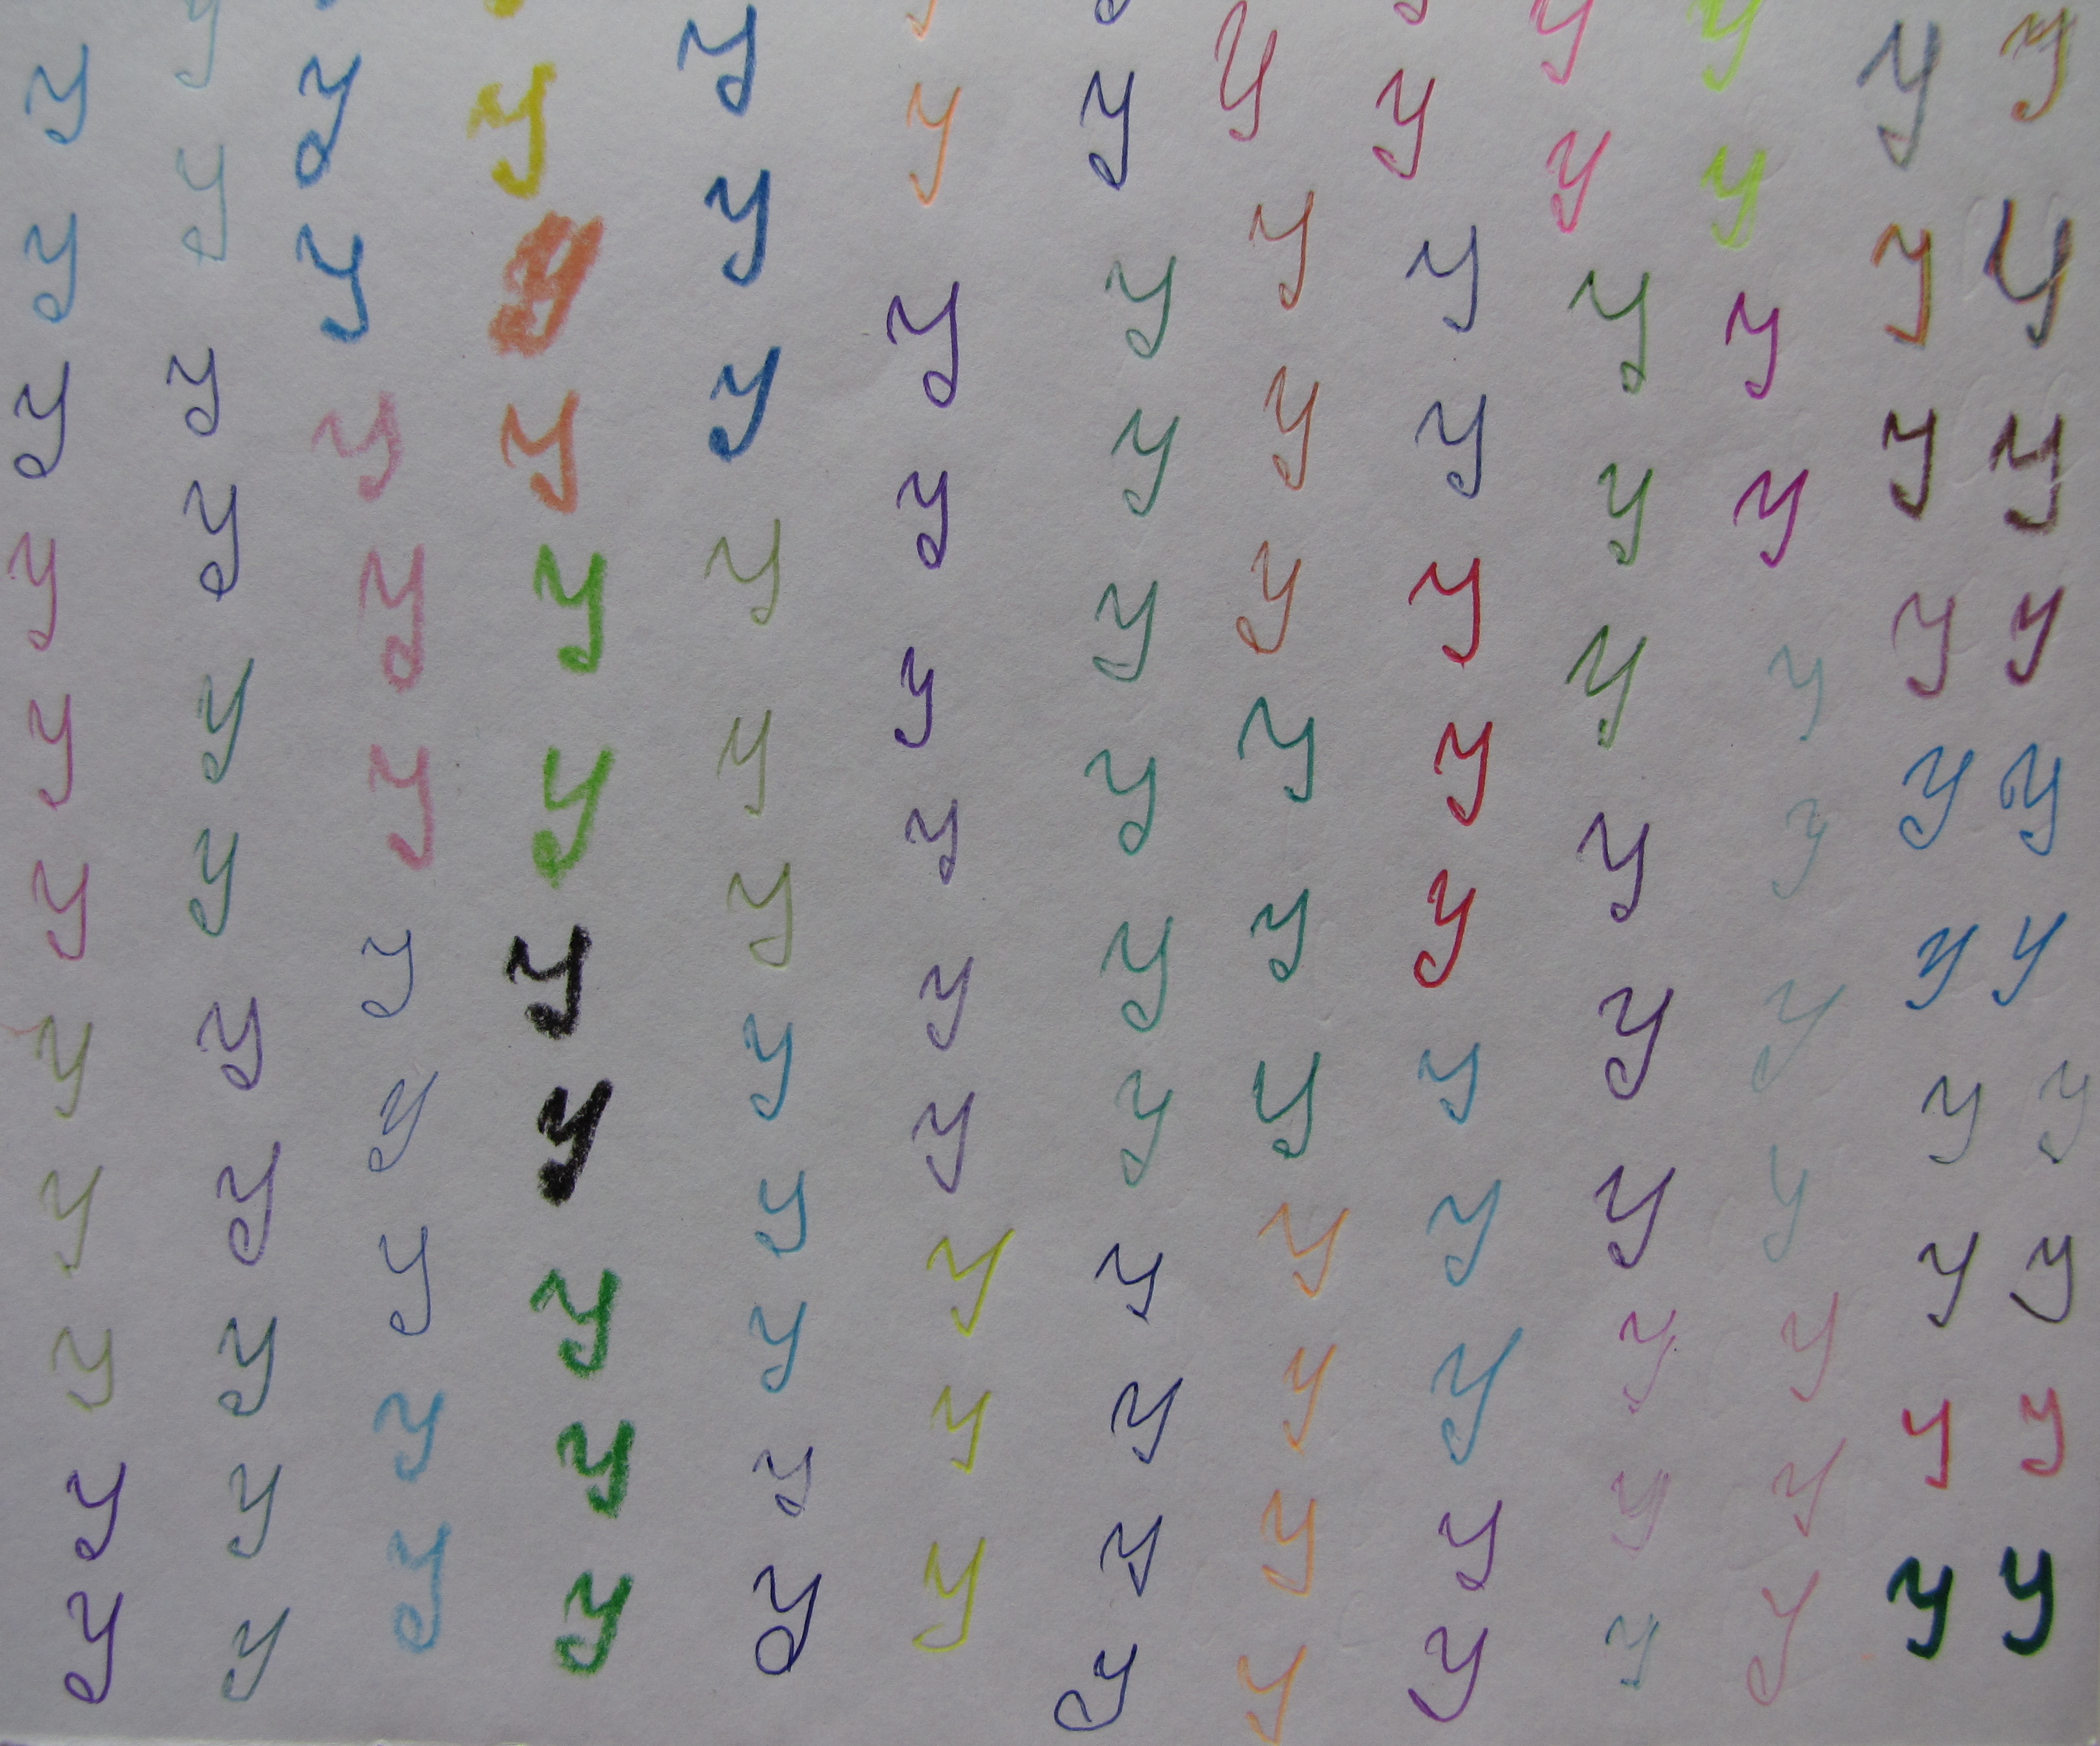 y y y y y y y y y y y y y
y y y y y y y y y y y y y
y y y y y y y y y y y y y
y y y y y y y y y y y y y
y y y y y y y y y y y y y
y y y y y y y y y y y y y
y y y y y y y y y y y y y
y y y y y y y y y y y y y
y y y y y y y y y y y y y
y y y y y y y y y y y y y
y y y y y y y y